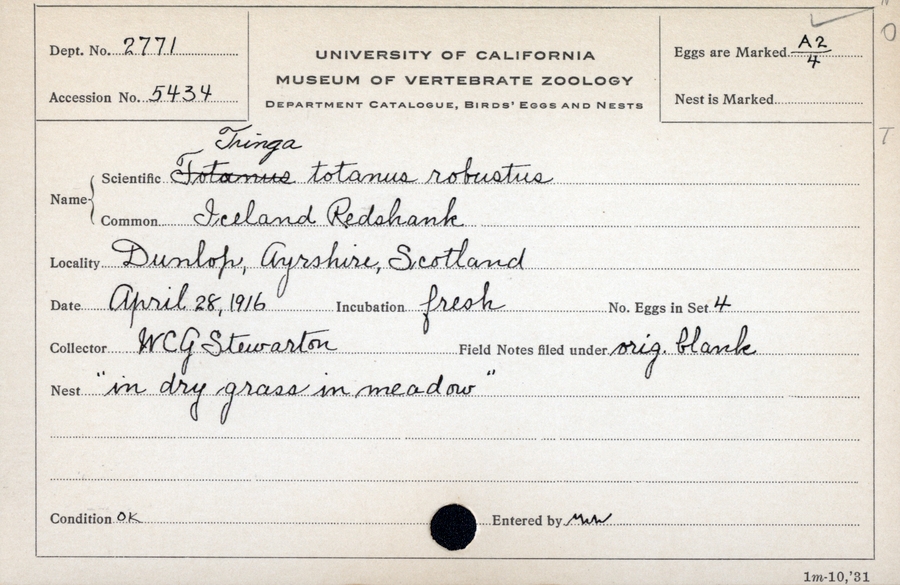 Dept. No. 2771
Accession No. 5434
UNIVERSITY OF CALIFORNIA
MUSEUM OF VERTEBRATE ZOOLOGY
DEPARTMENT CATALOGUE, BIRDS' EGGS AND NESTS
Eggs are Marked A2/4
Nest is Marked
O
T
Tringa
Name Scientific Totanus totanus robustus
Common Iceland Redshank
Locality Dunlop, Ayrshire, Scotland
Date April 28, 1916 Incubation fresh No. Eggs in Set 4
Collector WCG Stewarton Field Notes filed under orig. blank
Nest "in dry grass in meadow"
Condition OK Entered by
1m-10,'31